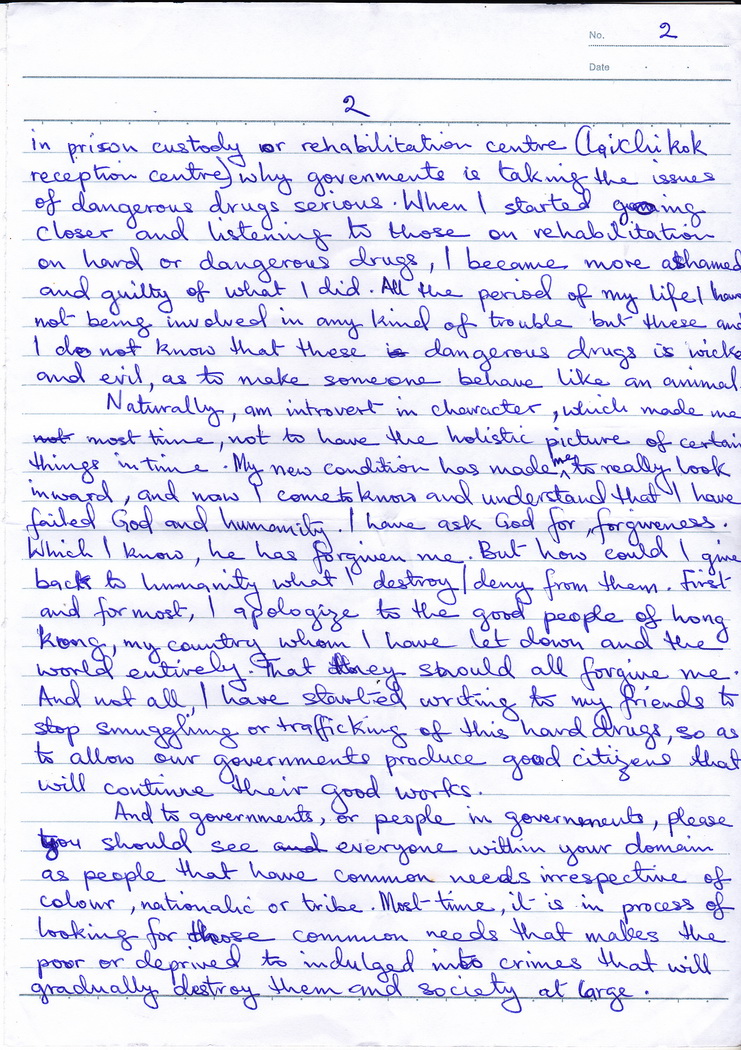 No. 2
Date
2
in prison custody or rehabilitation centre (Laichikok
reception centre) why govenments is taking the issues
of dangerous drugs serious. When I started going
closer and listening to those on rehabilitation
on hard or dangerous drugs, I became more ashamed
and guilty of what I did. All the period of my life I have
not being involved in any kind of trouble but these and
I do not know that these is dangerous drugs is wicke
and evil, as to make someone behave like an animal.
Naturally, am introvert in character, which made me
not most time, not to have the holistic picture of certain
things in time. My new condition has made me to really look
inward, and now I come to know and understand that I have
failed God and humanity. I have ask God for forgiveness.
Which I know, he has forgiven me. But how could I give
back to humanity what I destroy/deny from them. First
and for most, I apologize to the good people of hong
kong, my country whom I have let down and the
world entirely. That they should all forgive me.
And not all, I have started writing to my friends to
stop smuggling or trafficking of this hard drugs, so as
to allow our governments produce good citizens that
will continue their good works.
And to governments, or people in governments, please
you should see and everyone within your domain
as people that have common needs irrespective of
colour, nationalic or tribe. Most-time, it is in process of
looking for those common needs that makes the
poor or deprived to indulged into crimes that will
gradually destroy them and society at large.